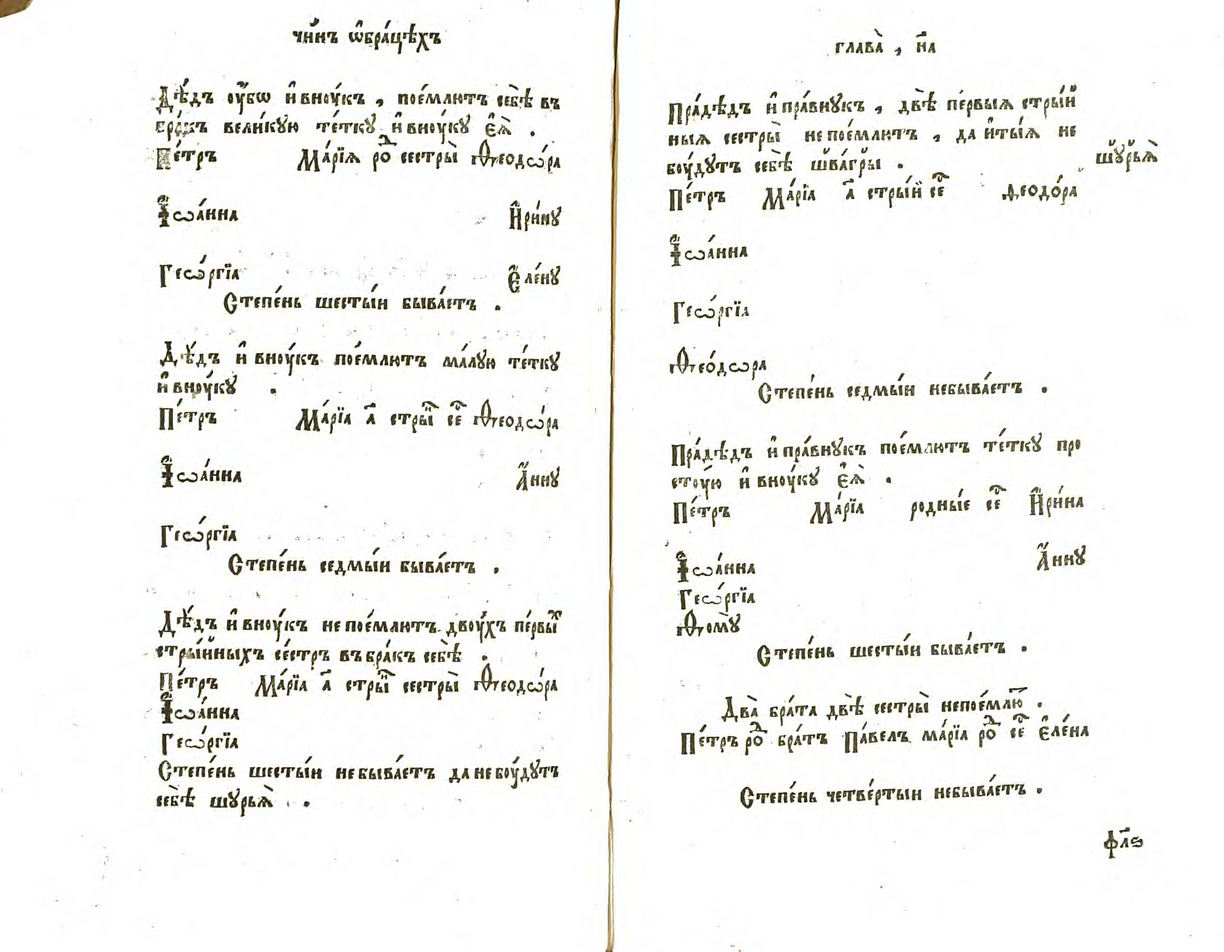 чи́нъ ѡ҆бра́цѣхъ
Дѣ́дъ ᲂу҆́бѡ и҆ внꙋ́къ , пое́млютъ себѣ̀ въ
бра́къ вели́кую те́тку и҆ внꙋ́ку є҆ѧ̀ .
Пе́тръ Марі́ѧ роⷣ сестры̀ Ѳеодѡ́ра
І҆ѡа́нна И҆ри́нꙋ
Геѡ́ргїа Є҆ле́нꙋ
Степе́нь шесты́и быва́етъ .
Дѣ́дъ и҆ внꙋ́къ пое́млютъ ма́лую те́тку
и҆ внꙋ́кꙋ .
Пе́тръ Ма́рїа а҃ стрыⷤ сеⷭ҇ Ѳеодѡ́ра
І҆ѡа́нна А҆́ннꙋ
Геѡ́ргїа
Степе́нь седмы́и быва́етъ .
Дѣ́дъ и҆ внꙋ́къ не пое́млютъ двоꙋ́хъ пе́рвыⷯ
стры́йныхъ се́стръ въ бра́къ себѣ̀ .
Пе́тръ Ма́рїа а҃ стрыⷤ сестры̀ Ѳеодѡ́ра
І҆ѡа́нна
Геѡ́ргїа
Степе́нь шесты́и не быва́етъ да не бꙋ́дутъ
себѣ̀ шурьѧ̀ .
глава̀ , н҃а
Пра́дѣдъ и҆ пра́внукъ , двѣ̀ пе́рвыѧ стры́й
ныѧ сестры̀ не пое́млютъ , да и҆ ты́ѧ не
бꙋ́дутъ себѣ̀ шва́гры . шꙋ́рьѧ̀
Пе́тръ Ма́рїа а҃ стры́й сеⷭ҇ Ѳеодо́ра
І҆ѡа́нна
Геѡ́ргїа
Ѳео́дѡра
Степе́нь седмы́и не быва́етъ .
Пра́дѣдъ и҆ пра́внукъ пое́млютъ те́тку про
стꙋ́ю и҆ внꙋ́ку є҆ѧ̀ .
Пе́тръ Ма́рїа родны́е сеⷭ҇ И҆ри́на
І҆ѡа́нна А҆́ннꙋ
Геѡ́ргїа
Ѳомꙋ̀
Степе́нь шесты́и быва́етъ .
Два̀ бра́та двѣ̀ сестры̀ не пое́млюⷮ .
Пе́тръ роⷣ бра́тъ Па́велъ ма́рїа роⷣ сеⷭ҇ Є҆ле́на
Степе́нь четве́ртыи не быва́етъ .
ф҃лѕ